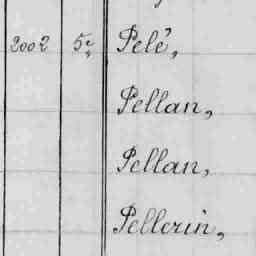 2002 5e, Pelé,
Pellan,
Pellan,
Pellerin,